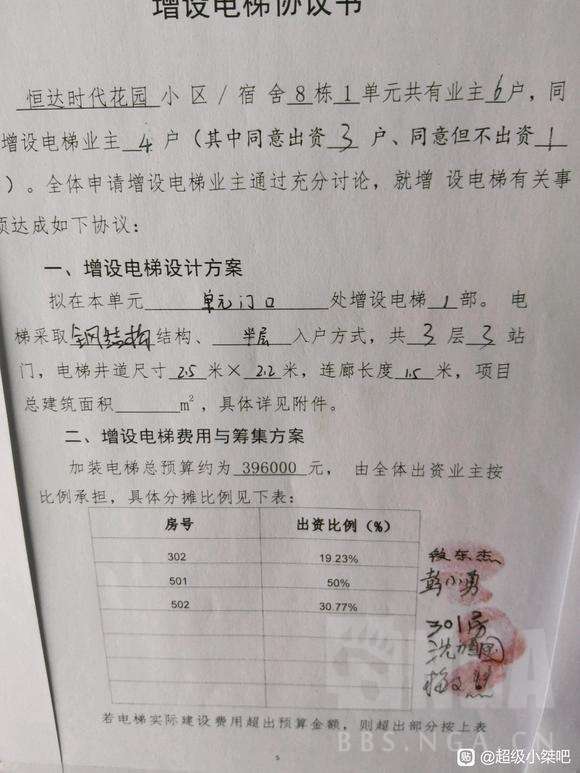 增设电梯协议书
恒达时代花园小区/宿舍8栋1单元共有业主6户，同
增设电梯业主4户（其中同意出资3户、同意但不出资1
）。全体申请增设电梯业主通过充分讨论，就增 设电梯有关事
项达成如下协议：
一、增设电梯设计方案
拟在本单元单元门口处增设电梯1部。 电
梯采取钢结构结构、半层入户方式，共3层3站
门，电梯井道尺寸2.5米×2.2米，连廊长度1.5米，项目
总建筑面积______m²，具体详见附件。
二、增设电梯费用与筹集方案
加装电梯总预算约为396000元， 由全体出资业主按
比例承担，具体分摊比例见下表：
房号 出资比例（%）
302 19.23%
501 50%
彭小勇
502 30.77%
301房
若电梯实际建设费用超出预算金额，则超出部分按上表
5
NGA
BBS.NGA.CN
贴 @超级小桀吧